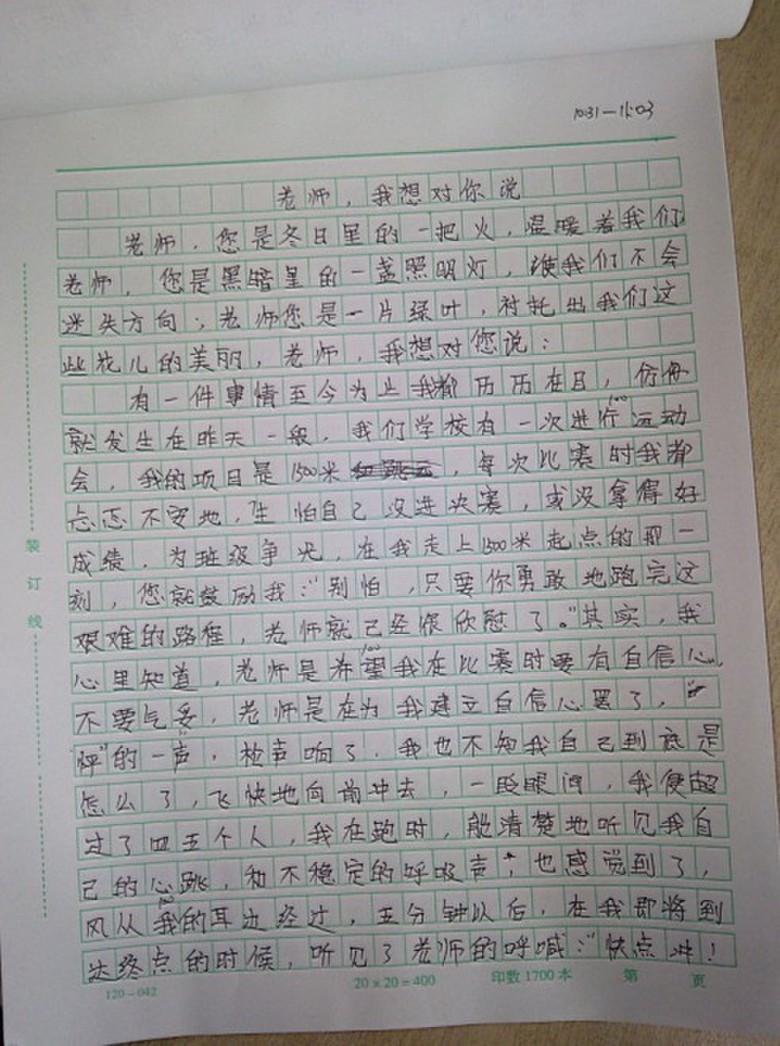 10:31—11:03
老师，我想对你说
老师，您是冬日里的一把火，温暖着我们
老师，您是黑暗里的一盏照明灯，使我们不会
迷失方向；老师您是一片绿叶，衬托出我们这
些花儿的美丽，老师，我想对您说：
有一件事情至今为止我都历历在目，仿佛
就发生在昨天一般，我们学校有一次进行运动
会，我的项目是1500米，每次比赛时我都
忐忑不安地，生怕自己没进决赛，或没拿得好
成绩，为班级争光，在我走上1500米起点的那一
刻，您就鼓励我：“别怕，只要你勇敢地跑完这
艰难的路程，老师就已经很欣慰了。”其实，我
心里知道，老师是希望我在比赛时要有自信心，
不要气妥，老师是在为我建立自信心罢了，“
怦”的一声，枪声响了，我也不知我自己到底是
怎么了，飞快地向前冲去，一眨眼间，我便超
过了四五个人，我在跑时，能清楚地听见我自
己的心跳，和不稳定的呼吸声，也感觉到了，
风从我的耳边经过，五分钟以后，在我即将到
达终点的时候，听见了老师的呼喊：“快点冲！
装订线
100
100
100
120-042
20×20=400
印数1700本
第 页